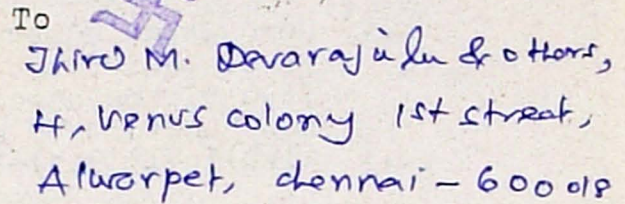 To
Thiru M. Devarajulu & others,
4, Venus colony 1st street,
Alwarpet, chennai - 600 018